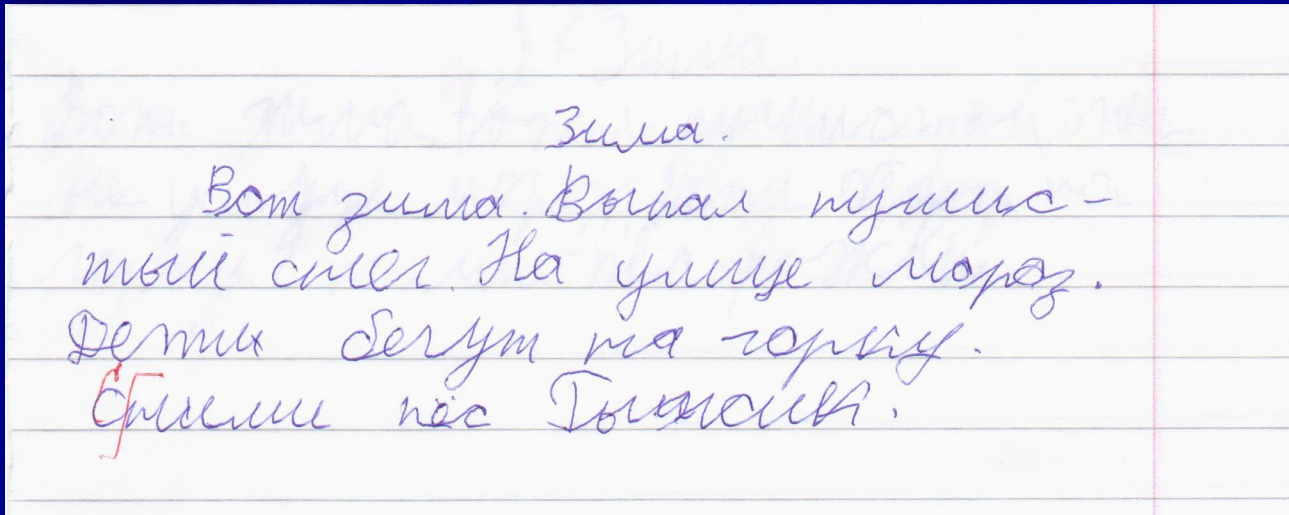 Зима.
Вот зима. Выпал пушис-
тый снег. На улице мороз.
Дети бегут на горку.
Сними пёс Тыжик.